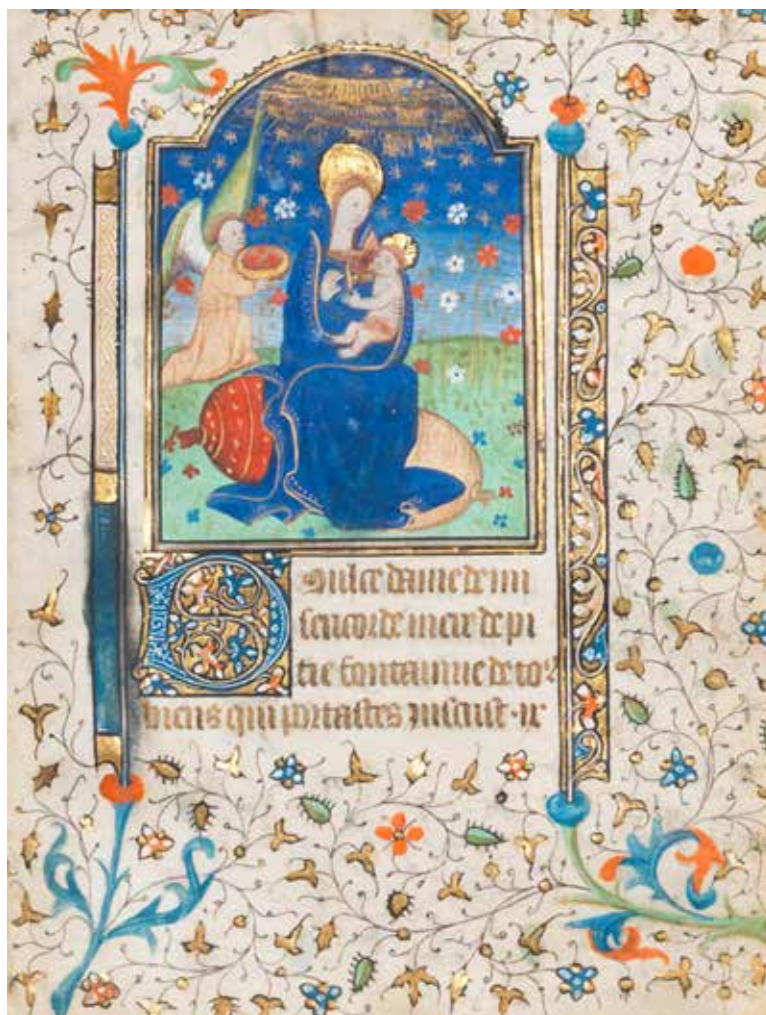 Doulce dame de mi
sericorde mere de pi
tie fontainne de to⁹
biens qui portastes jhesucrist ·ix·